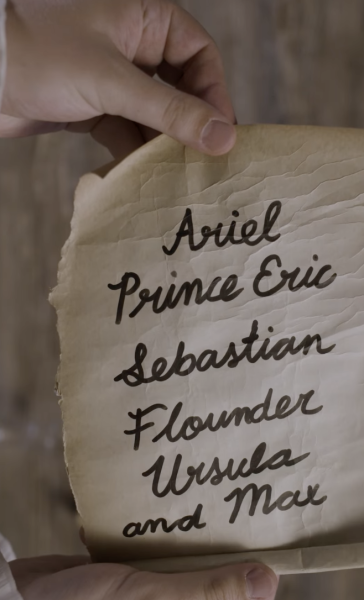 Ariel
Prince Eric
Sebastian
Flounder
Ursula
and Max